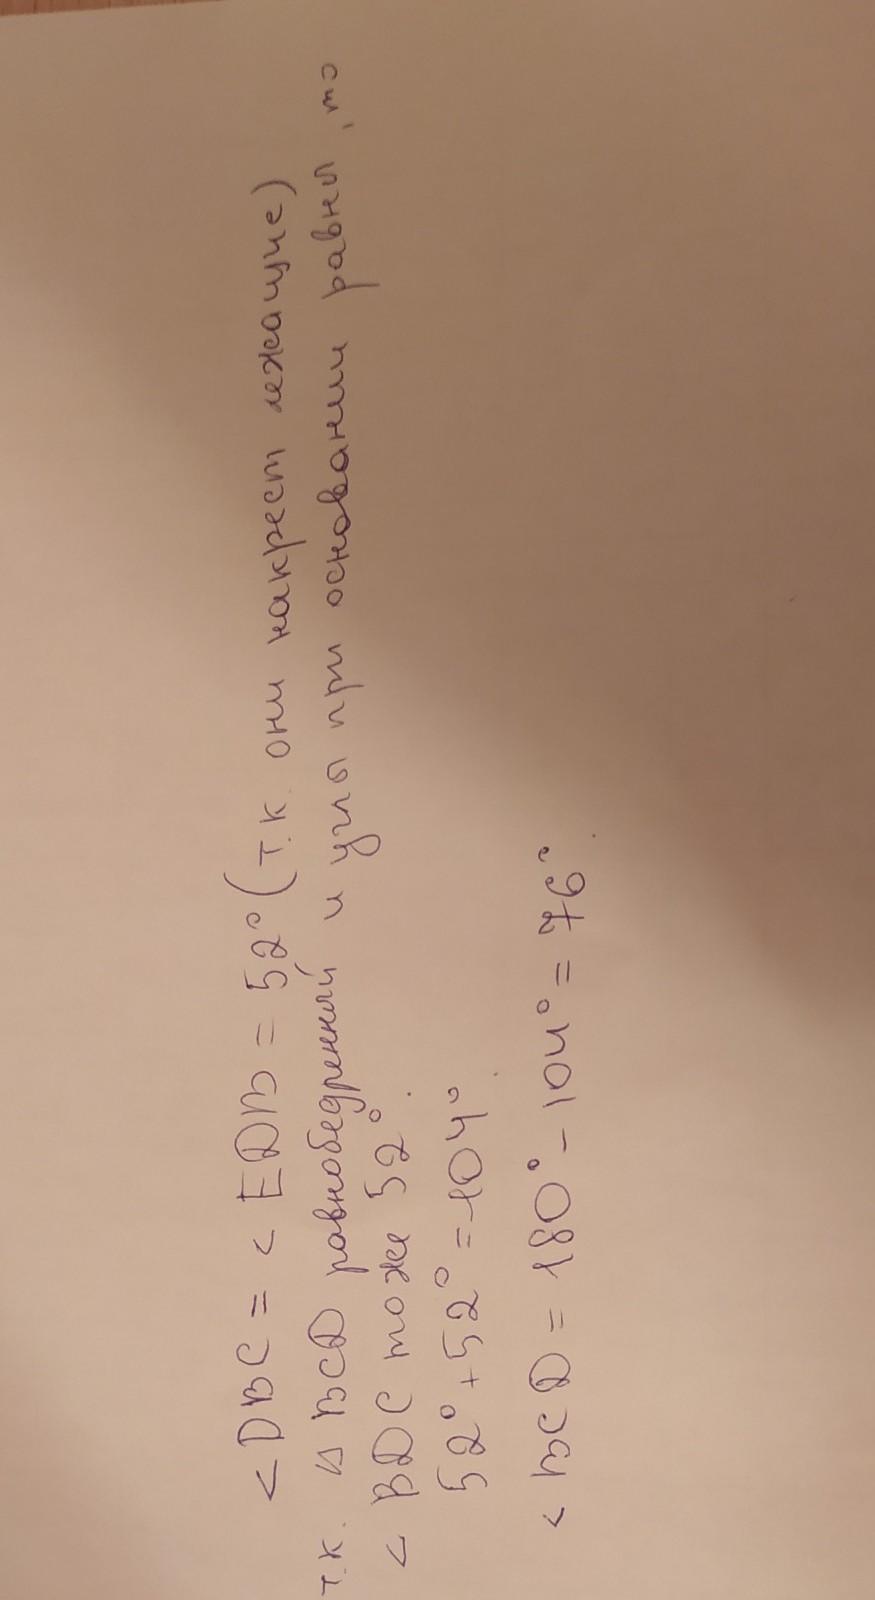 < DBC = < EDB = 52° (т.к. они накрест лежащие)
т.к. △ BCD равнобедренный и углы при основании равны, то
< BDC тоже 52°.
52° + 52° = 104°.
< BCD = 180° - 104° = 76°.